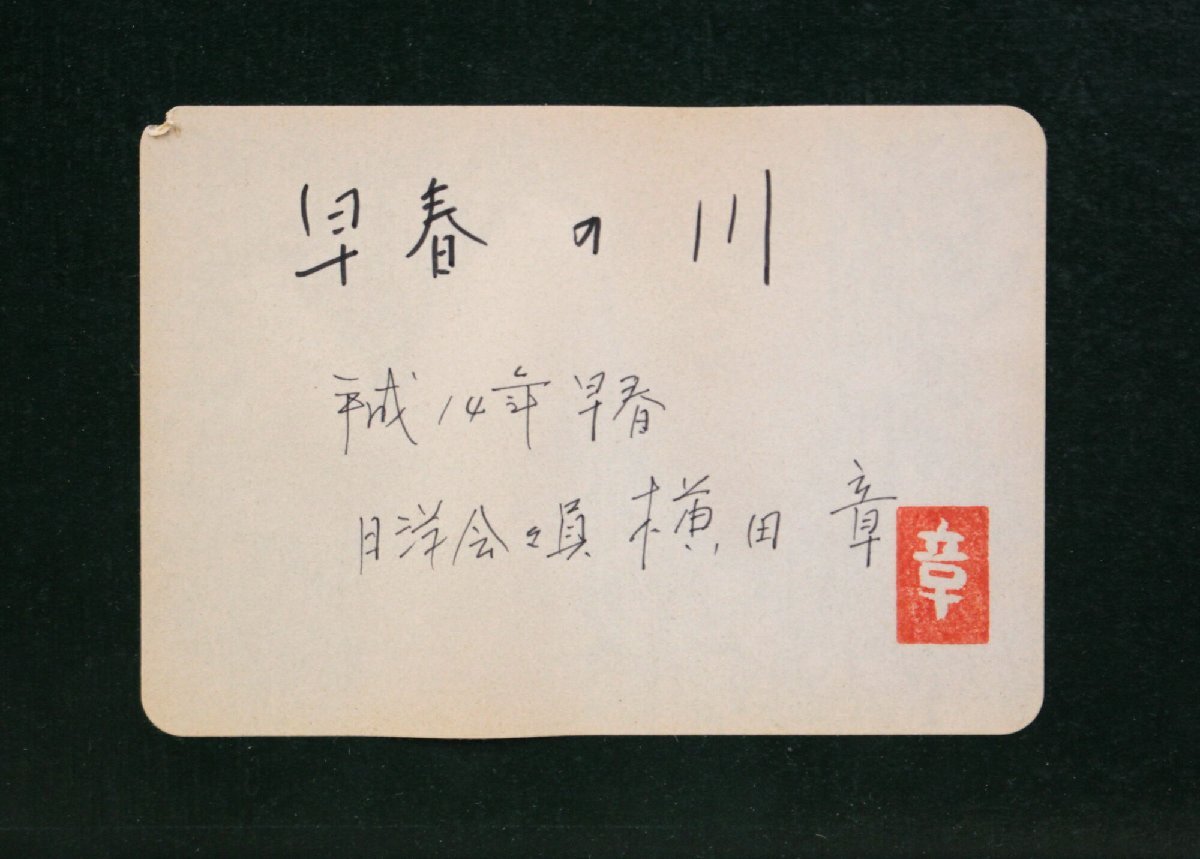 早春の川
平成14年早春
日洋会々員 横田 章
章